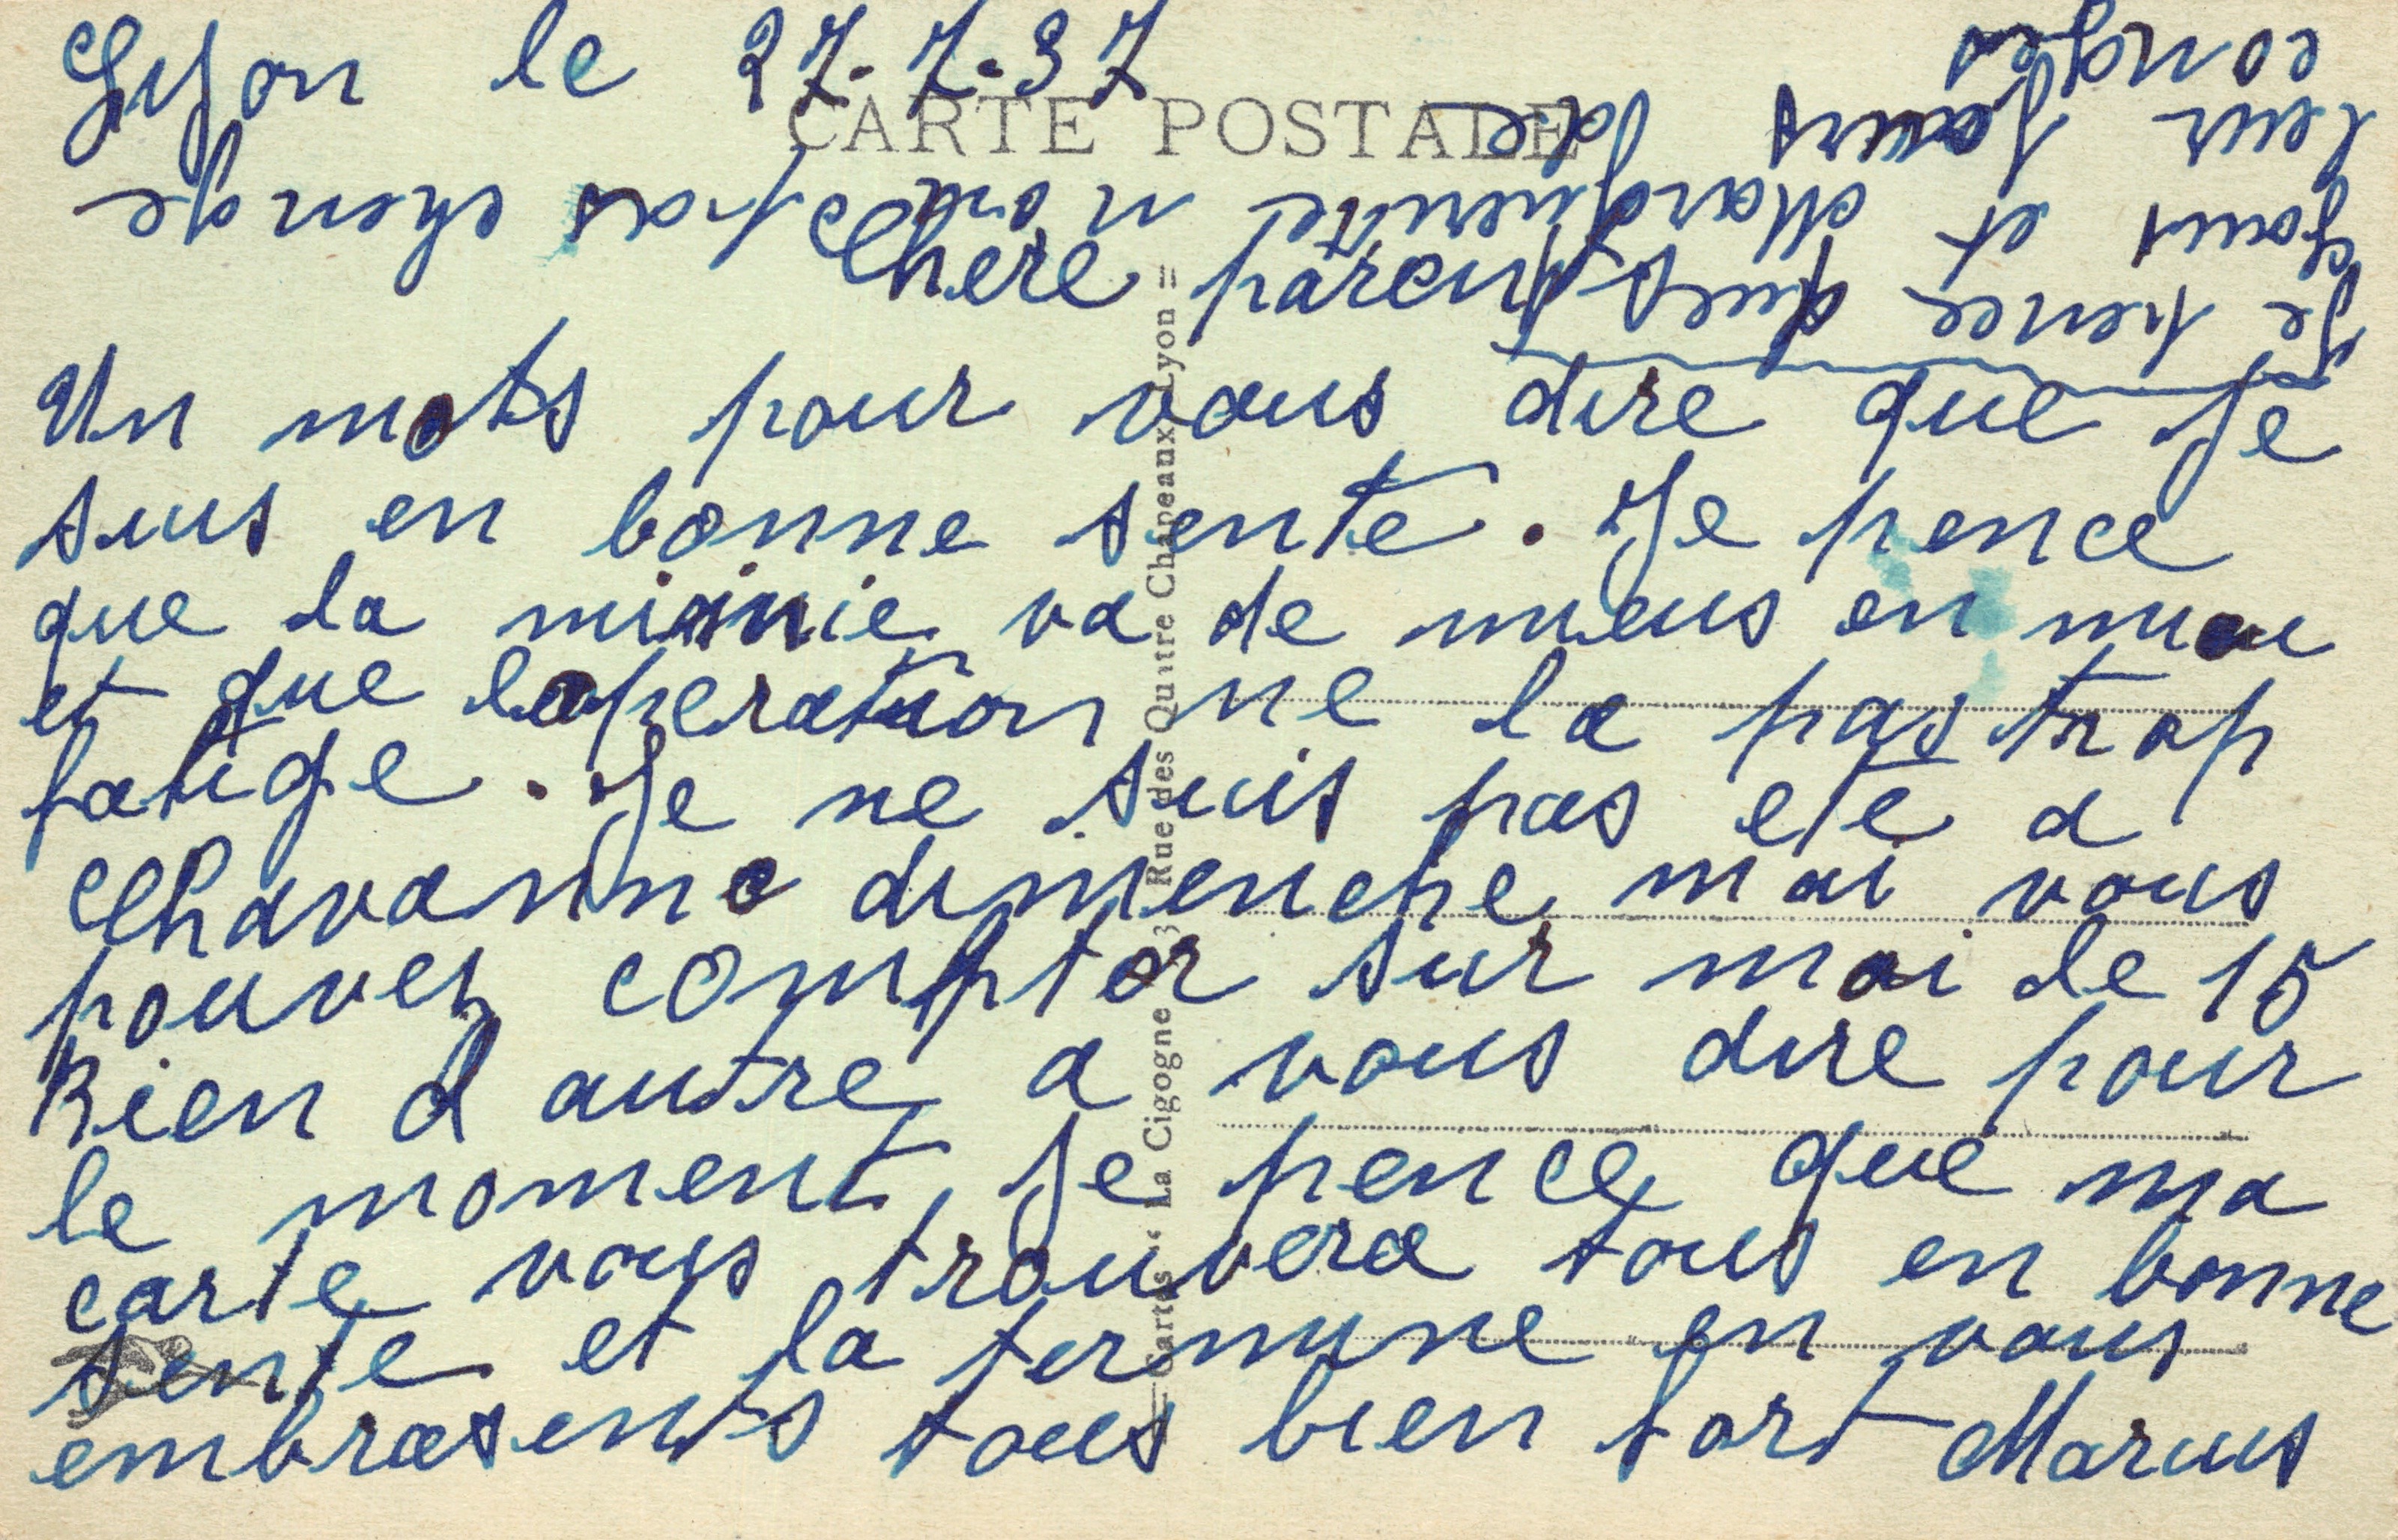 Lyon le 27-7-37
CARTE POSTALE
Chere parents
Un mots pour vous dire que je
suis en bonne sente. Je pence
que la mimie va de mieus en mieu
et que loperation ne la pas trop
fatige. Je ne suis pas ete a
Chavanne dimenche mai vous
pouvez compter sur moi le 15
Rien d autre a vous dire pour
le moment, je pence que ma
carte vous trouvera tous en bonne
sente et la termine en vous
embrasents tous bien fort Marius
Je pence ques
et Marguerite n ont pas change
leur jours de
conges
Cartes "La Cigogne" Rue des Quatre Chapeaux Lyon